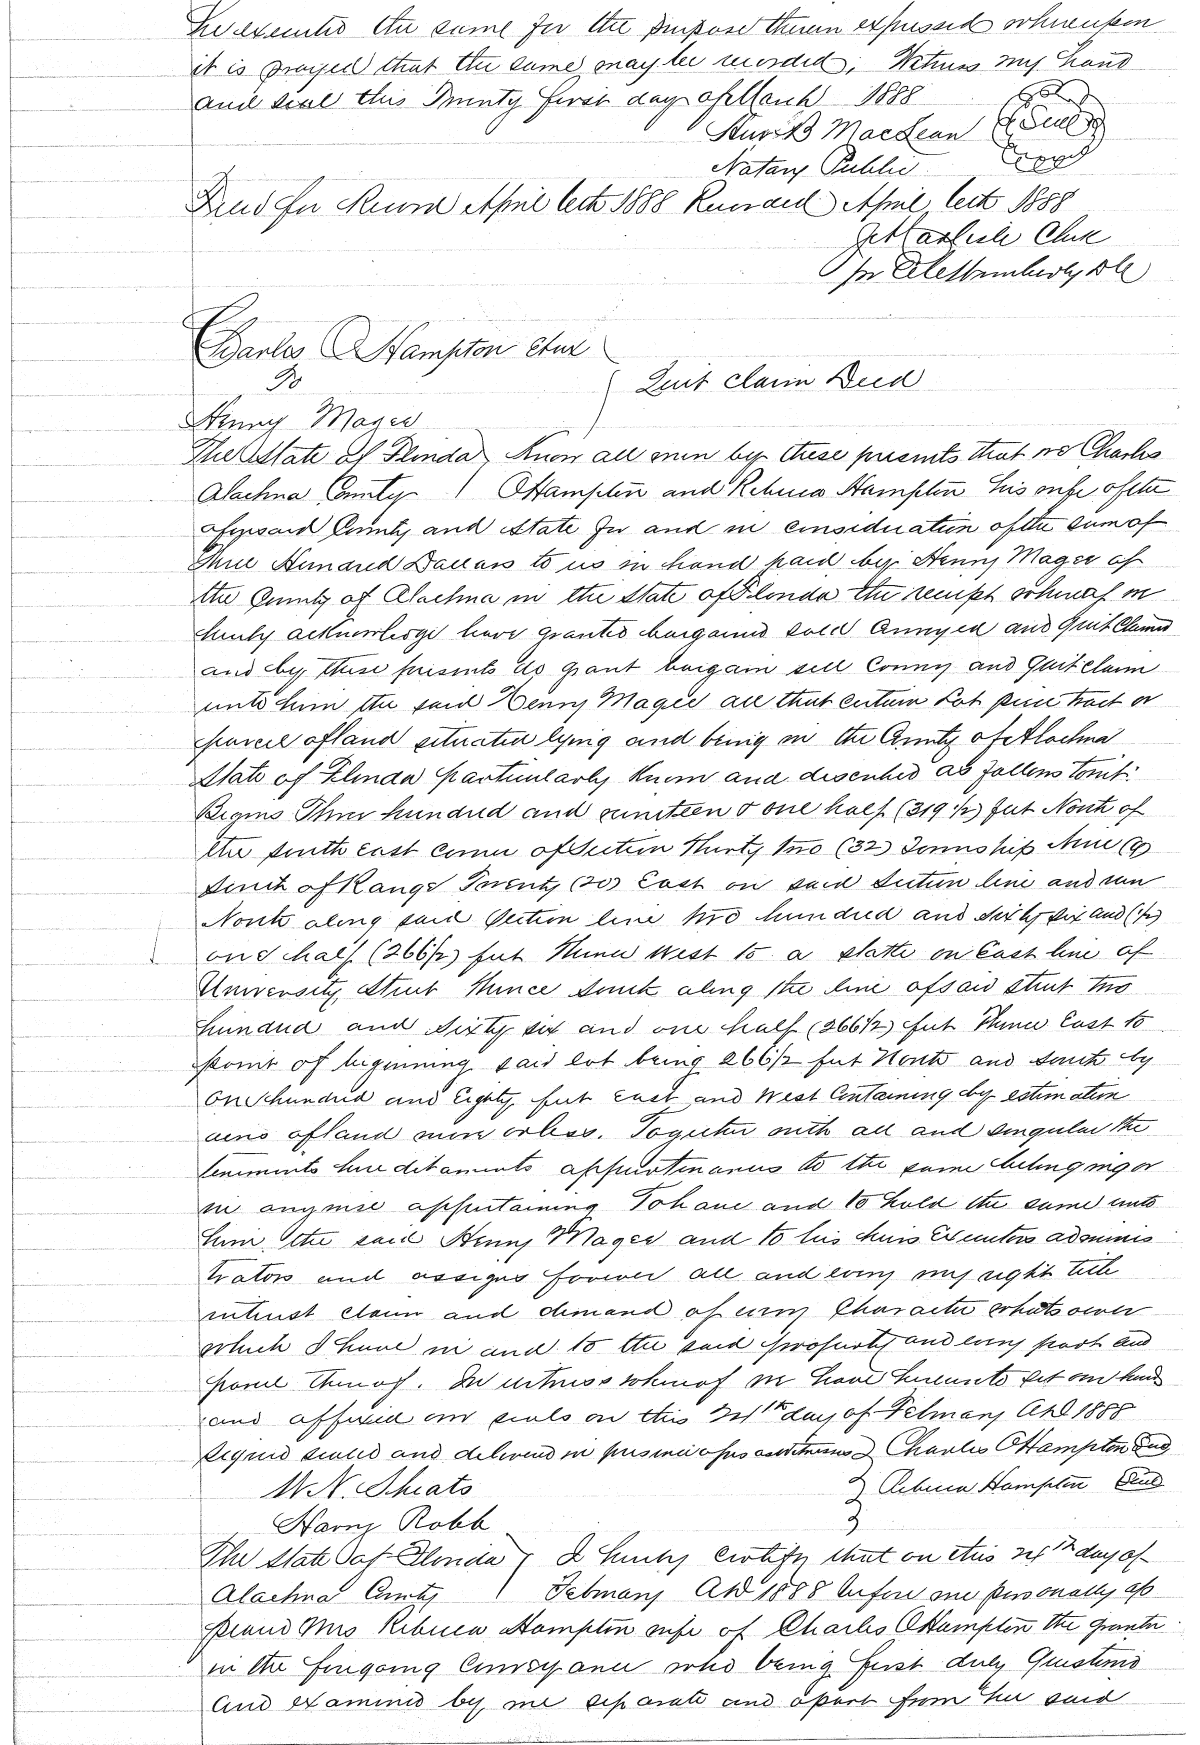 he executed the same for the purpose therein expressed whereupon
it is prayed that the same may be recorded. Witness my hand
and seal this Twenty first day of March 1888
MacLean (Seal)
Notary Public
Filed for Record April 1888 Recorded April 1888
Clerk
per
Charles O Hampton etux
To
Quit Claim Deed
Henny Magee
The State of Florida Know all men by these presents that we Charles
Alachua County O Hampton and Rebecca Hampton his wife of the
aforesaid County and State for and in consideration of the sum of
Three Hundred Dollars to us in hand paid by Henny Magee of
the County of Alachua in the State of Florida the receipt whereof we
hereby acknowledge have granted bargained sold conveyed and Quit Claimed
and by these presents do grant bargain sell Convey and Quit claim
unto him the said Henny Magee all that certain Lot piece tract or
parcel of land situated lying and being in the County of Alachua
State of Florida particularly known and described as follows towit:
Begins Three hundred and nineteen & one half (319 1/2) feet North of
the south east corner of Section Thirty two (32) Township Nine (9)
South of Range Twenty (20) East on said section line and run
North along said Section line two hundred and sixty six and (1/2)
one half (266 1/2) feet Thence West to a stake on East line of
University Street Thence South along the line of said street two
hundred and sixty six and one half (266 1/2) feet Thence East to
point of beginning said lot being 266 1/2 feet North and South by
One hundred and Eighty feet East and West Containing by estimation
acres of land more or less. Together with all and singular the
tenements hereditaments appurtenances to the same belonging or
in anywise appertaining To have and to hold the same unto
him the said Henny Magee and to his heirs Executors adminis
trators and assigns forever all and every my right title
interest claim and demand of every Character whatsoever
which I have in and to the said property and every part and
parcel thereof. In witness whereof we have hereunto set our hands
and affixed our seals on this day of February AD 1888
Signed sealed and delivered in presence of us as witnesses Charles O Hampton Seal
W. N. Sheats Rebecca Hampton Seal
Harry Robb
The State of Florida I hereby certify that on this day of
Alachua County February AD 1888 before me personally ap
peared Mrs Rebecca Hampton wife of Charles O Hampton the grantor
in the foregoing Conveyance who being first duly Questioned
and examined by me separate and apart from her said